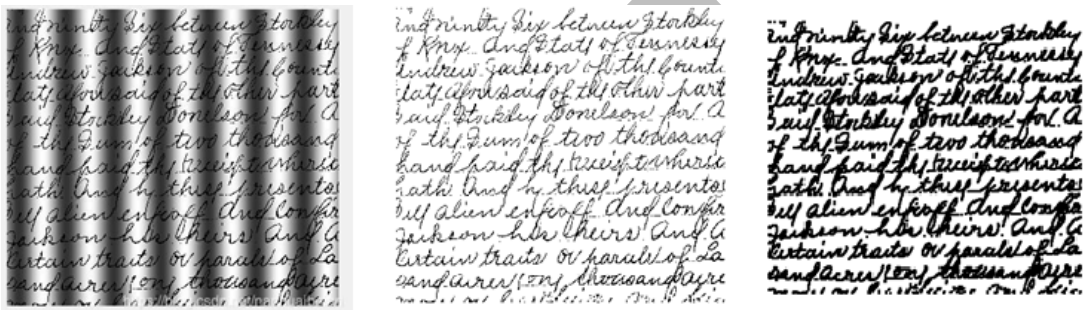 and Ninety Six between Stockley
of Knox And Stat of Tennessey
Andrew Jackson of the Count
tat aforesaid of the other part
said Stockley Donelson for A
of the Sum of two thousand
hand paid the receipt wheri
hath And by these presents
Sell alien enfeoff And Confir
Jackson his heirs And A
Certain traits or parals of La
sand acres one thousand ayre
and Ninety Six between Stockley
of Knox And Stat of Tennessey
Andrew Jackson of the Count
tat aforesaid of the other part
said Stockley Donelson for A
of the Sum of two thousand
hand paid the receipt wheri
hath And by these presents
Sell alien enfeoff And Confir
Jackson his heirs And A
Certain traits or parals of La
sand acres one thousand ayre
and Ninety Six between Stockley
of Knox And Stat of Tennessey
Andrew Jackson of the Count
tat aforesaid of the other part
said Stockley Donelson for A
of the Sum of two thousand
hand paid the receipt wheri
hath And by these presents
Sell alien enfeoff And Confir
Jackson his heirs And A
Certain traits or parals of La
sand acres one thousand ayre